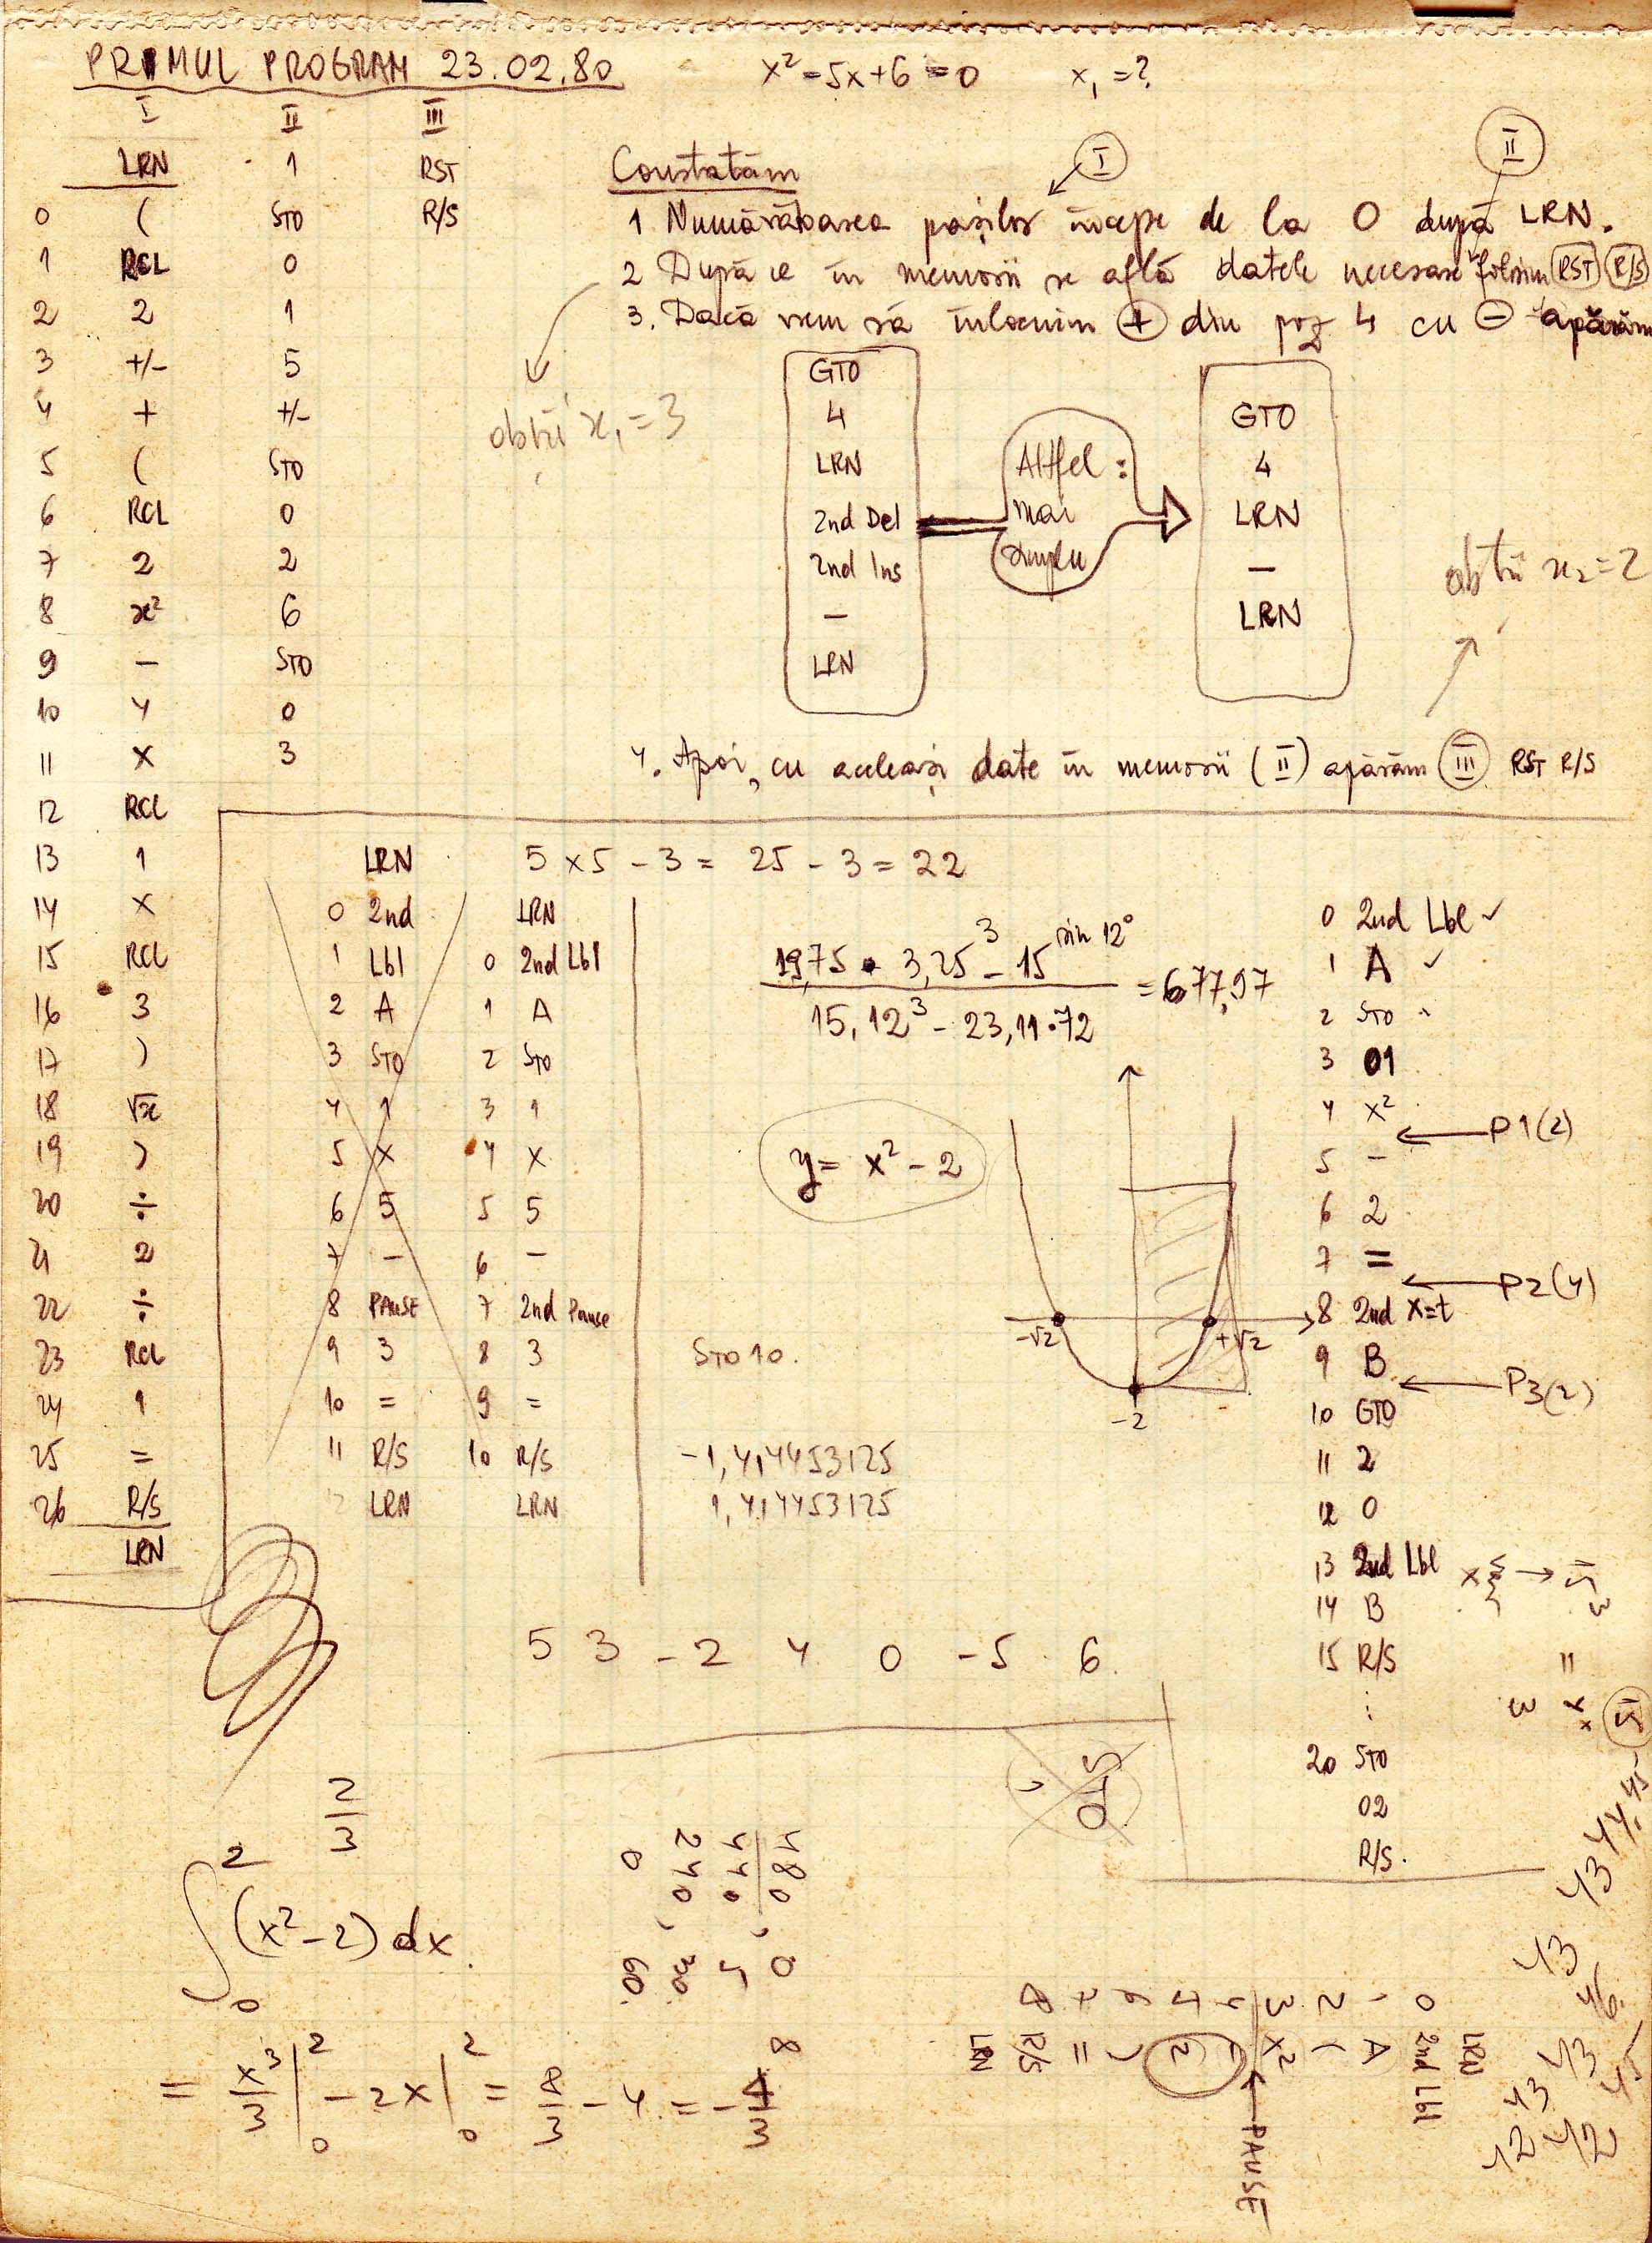 PRIMUL PROGRAM 23.02.80
x² - 5x + 6 = 0 x₁ = ?
I II III
LRN 1 RST
0 ( STO R/S
1 RCL 0
2 2 1
3 +/- 5
4 + +/-
5 ( STO
6 RCL 0
7 2 2
8 x² 6
9 — STO
10 4 0
11 X 3
12 RCL
13 1
14 X
15 RCL
16 3
17 )
18 √x
19 )
20 ÷
21 2
22 ÷
23 RCL
24 1
25 =
26 R/S
LRN
Constatăm
I
II
1 Numărătoarea pașilor începe de la 0 după LRN.
2 După ce în memorii se află datele necesare folosim RST R/S
3. Dacă vrem să înlocuim + din poz 4 cu - apăsăm
obții x₁ = 3
GTO
4
LRN
2nd Del
2nd Ins
—
LRN
Altfel :
mai
simplu
GTO
4
LRN
—
LRN
obții x₂ = 2
4. Apoi, cu aceleași date în memorii (II) apăsăm III RST R/S
LRN
0 2nd
1 Lbl
2 A
3 STO
4 1
5 X
6 5
7 -
8 PAUSE
9 3
10 =
11 R/S
12 LRN
5 x 5 - 3 = 25 - 3 = 22
LRN
0 2nd Lbl
1 A
2 STO
3 1
4 X
5 5
6 —
7 2nd Pause
8 3
9 =
10 R/S
LRN
19,75 • 3,25³ - 15 sin 12°
15,12³ - 23,11 • 72
= 677,97
y = x² - 2
-√2 +√2
-2
STO 10.
-1,414453125
1,414453125
0 2nd Lbl ✓
1 A ✓
2 STO
3 01
4 x²
P1(2)
5 -
6 2
7 =
P2(4)
8 2nd x=t
9 B
P3(2)
10 GTO
11 2
12 0
13 2nd Lbl
14 B
15 R/S
⋮
20 STO
02
R/S.
5 3 - 2 4 0 - 5 6
STO
2
3
∫ 2 0 (x² - 2) dx
= x³/3 |2 0 - 2x |2 0 = 8/3 - 4 = - 4/3
8
LRN
0 2nd Lbl
1 A
2 (
3 x²
PAUSE
4 -
5 2
6 )
7 =
8 R/S
LRN
45
44
43
43
46
43
45
43
42
42